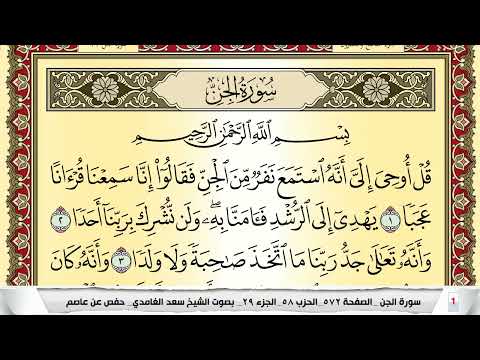 سُورَةُ الجِنِّ
بِسْمِ اللَّهِ الرَّحْمَٰنِ الرَّحِيمِ
قُلْ أُوحِيَ إِلَيَّ أَنَّهُ ٱسْتَمَعَ نَفَرٌ مِّنَ ٱلْجِنِّ فَقَالُوٓا۟ إِنَّا سَمِعْنَا قُرْءَانًا
عَجَبًا ١ يَهْدِىٓ إِلَى ٱلرُّشْدِ فَـَٔامَنَّا بِهِۦ ۖ وَلَن نُّشْرِكَ بِرَبِّنَآ أَحَدًا ٢
وَأَنَّهُۥ تَعَٰلَىٰ جَدُّ رَبِّنَا مَا ٱتَّخَذَ صَٰحِبَةً وَلَا وَلَدًا ٣ وَأَنَّهُۥ كَانَ
1 سورة الجن _ الصفحة ٥٧٢_ الحزب ٥٨_ الجزء ٢٩_ بصوت الشيخ سعد الغامدي_ حفص عن عاصم